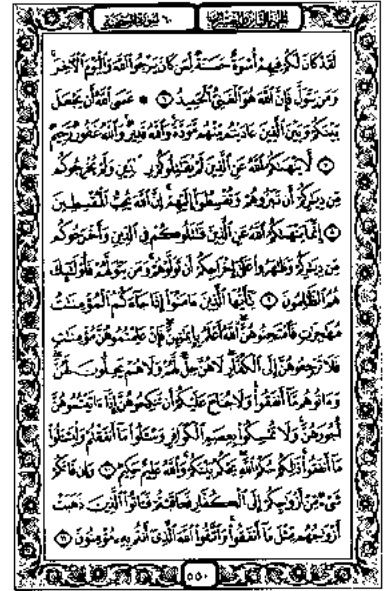 الجزء الثامن والعشرون ٦٠ سورة الممتحنة
لَقَدْ كَانَ لَكُمْ فِيهِمْ أُسْوَةٌ حَسَنَةٌ لِّمَن كَانَ يَرْجُوا۟ ٱللَّهَ وَٱلْيَوْمَ ٱلْءَاخِرَ
وَمَن يَتَوَلَّ فَإِنَّ ٱللَّهَ هُوَ ٱلْغَنِىُّ ٱلْحَمِيدُ ٦ ۞ عَسَى ٱللَّهُ أَن يَجْعَلَ
بَيْنَكُمْ وَبَيْنَ ٱلَّذِينَ عَادَيْتُم مِّنْهُم مَّوَدَّةً وَٱللَّهُ قَدِيرٌ وَٱللَّهُ غَفُورٌ رَّحِيمٌ
٧ لَّا يَنْهَىٰكُمُ ٱللَّهُ عَنِ ٱلَّذِينَ لَمْ يُقَٰتِلُوكُمْ فِى ٱلدِّينِ وَلَمْ يُخْرِجُوكُم
مِّن دِيَٰرِكُمْ أَن تَبَرُّوهُمْ وَتُقْسِطُوٓا۟ إِلَيْهِمْ إِنَّ ٱللَّهَ يُحِبُّ ٱلْمُقْسِطِينَ
٨ إِنَّمَا يَنْهَىٰكُمُ ٱللَّهُ عَنِ ٱلَّذِينَ قَٰتَلُوكُمْ فِى ٱلدِّينِ وَأَخْرَجُوكُم
مِّن دِيَٰرِكُمْ وَظَٰهَرُوا۟ عَلَىٰٓ إِخْرَاجِكُمْ أَن تَوَلَّوْهُمْ وَمَن يَتَوَلَّهُمْ فَأُو۟لَٰٓئِكَ
هُمُ ٱلظَّٰلِمُونَ ٩ يَٰٓأَيُّهَا ٱلَّذِينَ ءَامَنُوٓا۟ إِذَا جَآءَكُمُ ٱلْمُؤْمِنَٰتُ
مُهَٰجِرَٰتٍ فَٱمْتَحِنُوهُنَّ ٱللَّهُ أَعْلَمُ بِإِيمَٰنِهِنَّ فَإِنْ عَلِمْتُمُوهُنَّ مُؤْمِنَٰتٍ
فَلَا تَرْجِعُوهُنَّ إِلَى ٱلْكُفَّارِ لَا هُنَّ حِلٌّ لَّهُمْ وَلَا هُمْ يَحِلُّونَ لَهُنَّ
وَءَاتُوهُم مَّآ أَنفَقُوا۟ وَلَا جُنَاحَ عَلَيْكُمْ أَن تَنكِحُوهُنَّ إِذَآ ءَاتَيْتُمُوهُنَّ
أُجُورَهُنَّ وَلَا تُمْسِكُوا۟ بِعِصَمِ ٱلْكَوَافِرِ وَسْـَٔلُوا۟ مَآ أَنفَقْتُمْ وَلْيَسْـَٔلُوا۟
مَآ أَنفَقُوا۟ ذَٰلِكُمْ حُكْمُ ٱللَّهِ يَحْكُمُ بَيْنَكُمْ وَٱللَّهُ عَلِيمٌ حَكِيمٌ ١٠ وَإِن فَاتَكُمْ
شَىْءٌ مِّنْ أَزْوَٰجِكُمْ إِلَى ٱلْكُفَّارِ فَعَاقَبْتُمْ فَـَٔاتُوا۟ ٱلَّذِينَ ذَهَبَتْ
أَزْوَٰجُهُم مِّثْلَ مَآ أَنفَقُوا۟ وَٱتَّقُوا۟ ٱللَّهَ ٱلَّذِىٓ أَنتُم بِهِۦ مُؤْمِنُونَ ١١
٥٥٠